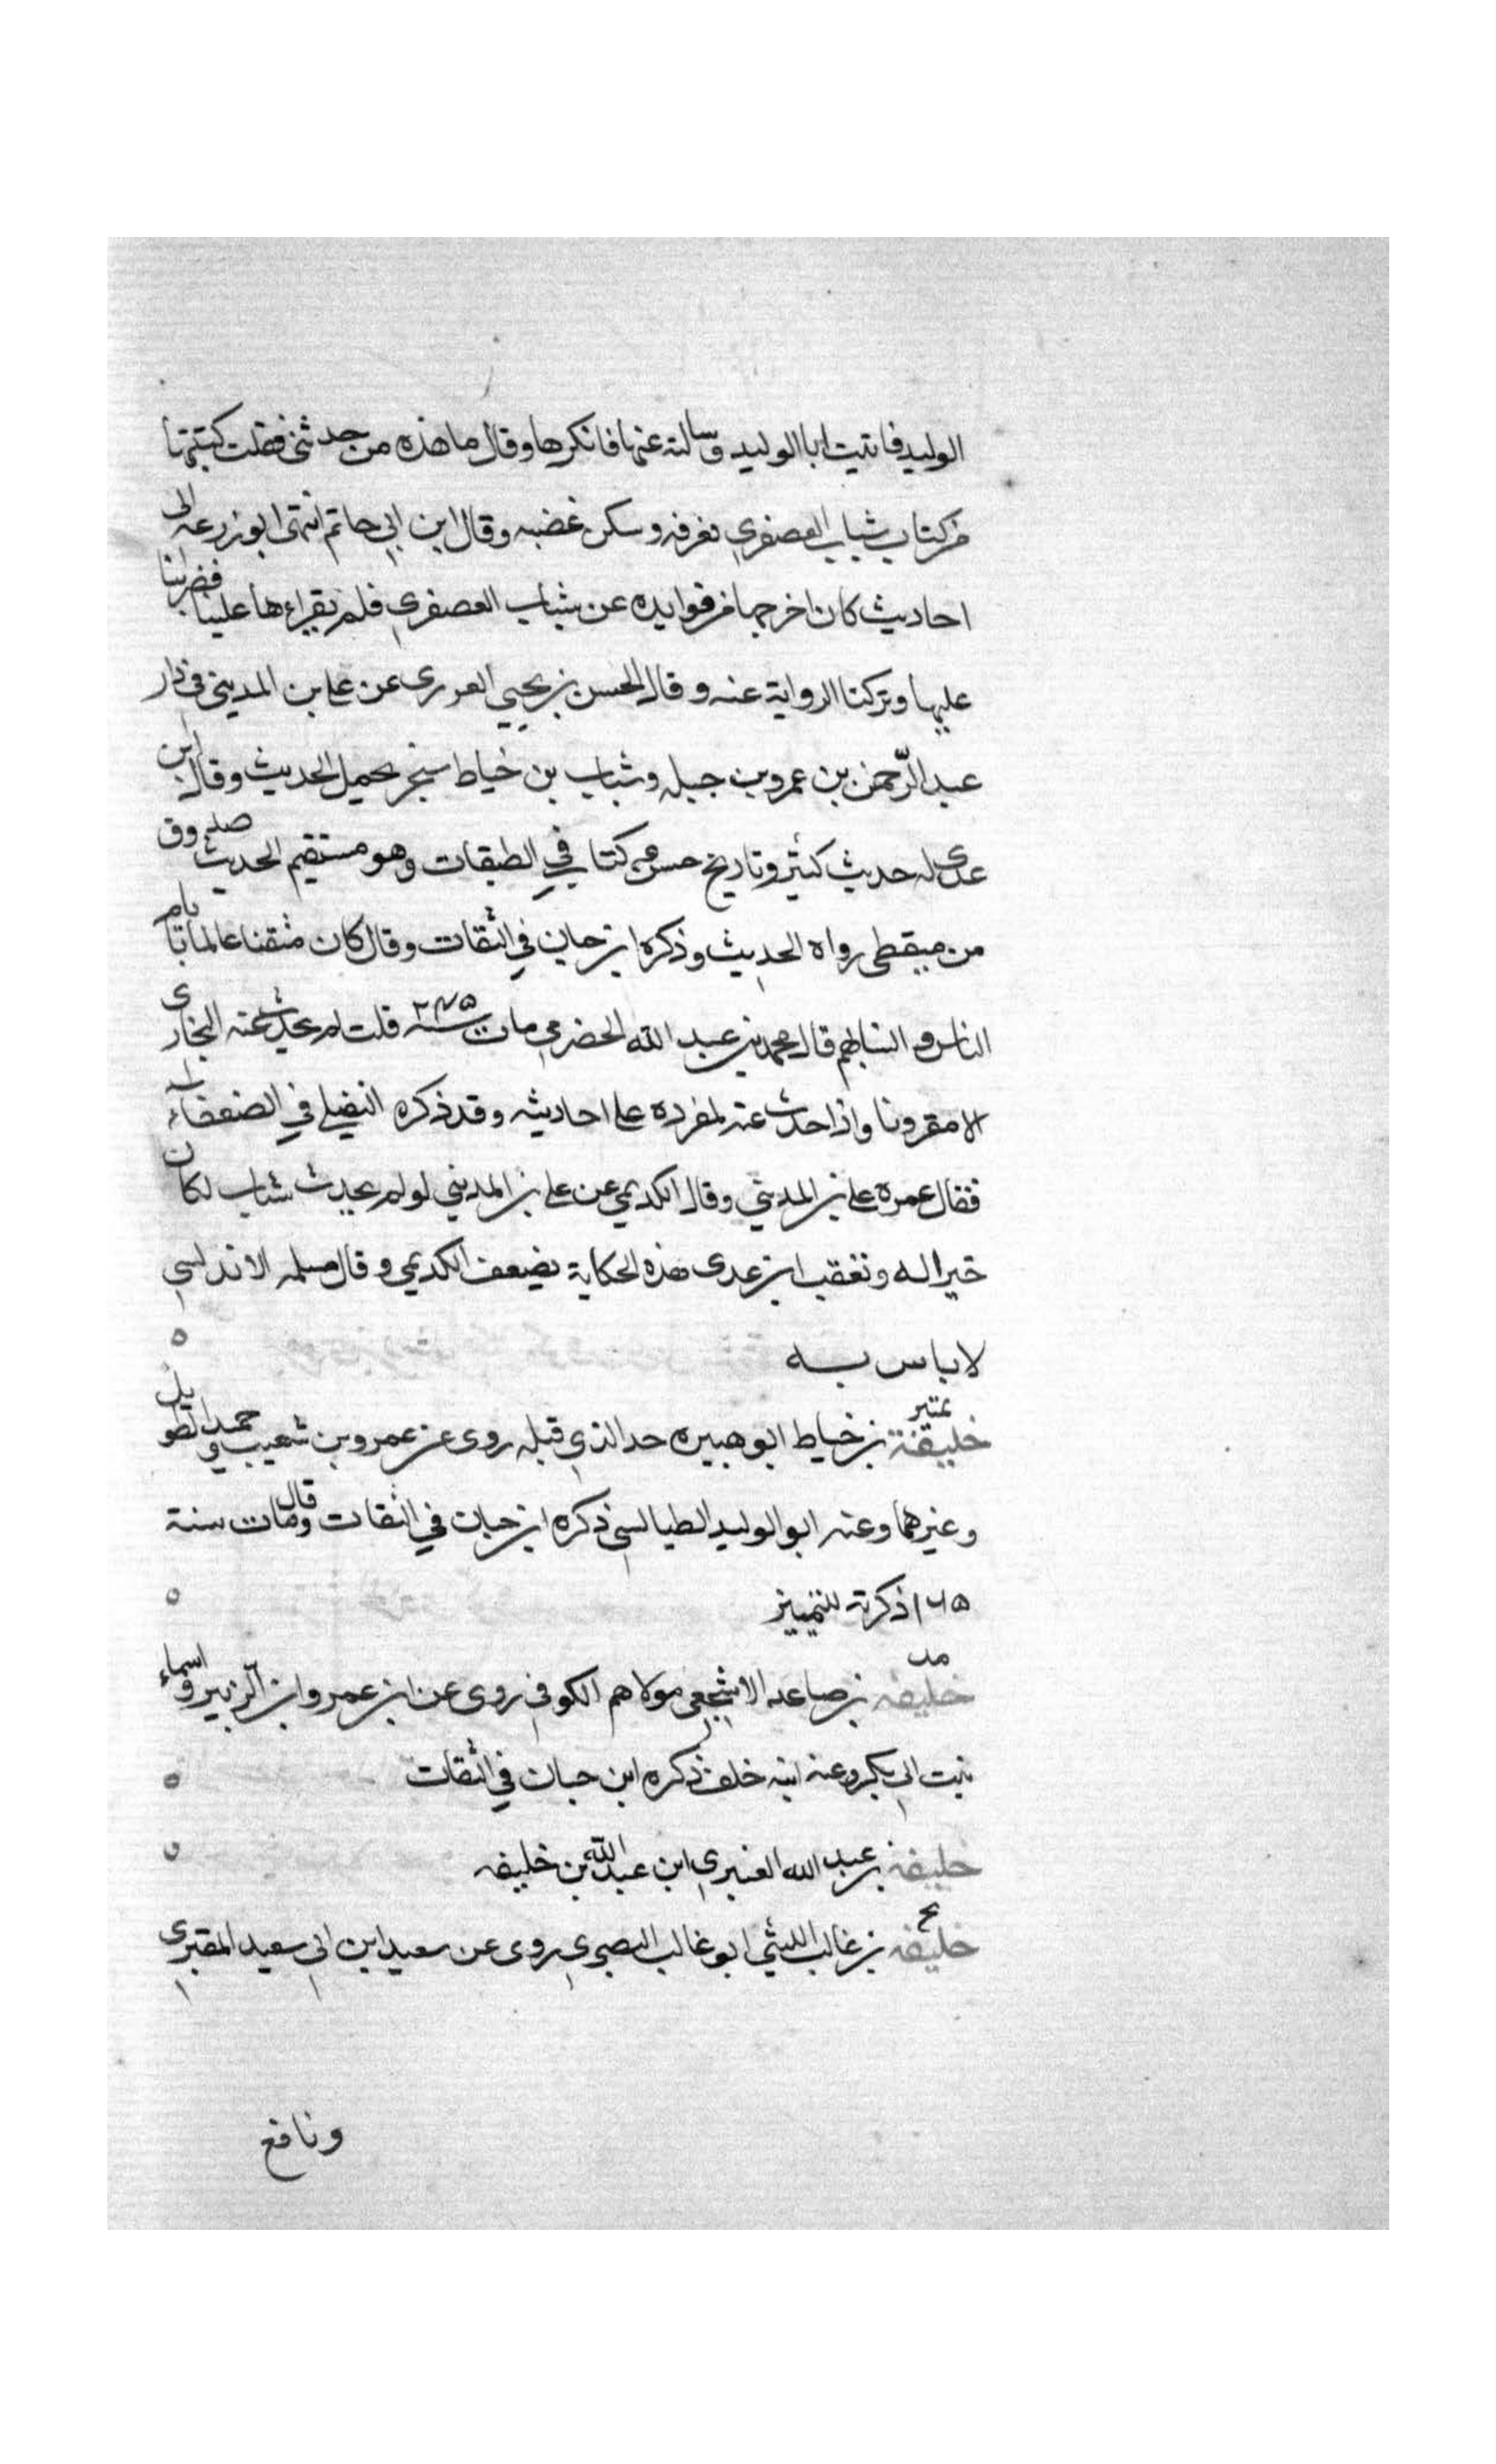 الوليد فاتيت ابا الوليد وسالته عنها فانكرها وقال ما هذه من حديثي فقلت كتبتها
من كتاب شباب العصفري فعرفه وسكن غضبه وقال ابن ابي حاتم انتهى ابو زرعه الى
احاديث كان اخرجها من فوايده عن شباب العصفري فلم يقراءها علينا فضربنا
عليها وتركنا الرواية عنه وقال الحسن بن يحيى عن علي بن المديني في دار
عبد الرحمن بن عمرو بن جبله وشباب بن خياط شجر يحمل الحديث وقال ابن
عدي له حديث كثير وتاريخ حسن وكتاب في الطبقات وهو مستقيم الحديث صدوق
من ميقظي رواه الحديث وذكره ابن حبان في الثقات وقال كان متقنا عالما بايام
الناس وانسابهم قال محمد بن عبد الله الحضرمي مات سنة قلت لم يحدث عنه البخاري
الا مقرونا واذا حدث عنه لمفرده علي احاديثه وقد ذكره في الضعفاء
فقال غمزه علي بن المديني وقال الكديمي عن علي بن المديني لو لم يحدث شباب لكان
خيرا له وتعقب ابن عدى هذه الحكاية بضعف الكديمي وقال مسلمه الاندلسي
لا باس به ه
تمييز
خليفة بن خياط ابو هبيره جد الذي قبله روى عن عمرو بن شعيب وحميد الطويل
وغيرهما وعنه ابو الوليد الطيالسي ذكره ابن حبان في الثقات وقال مات سنة
١٦٥ ذكرته للتمييز ه
مد
خليفه بن صاعد الاشجعي مولاهم الكوفي روى عن ابن عمر وابن الزبير واسماء
بنت ابي بكر وعنه ابنه خلف ذكره ابن حبان في الثقات ه
خليفه بن عبد الله العنبري ابن عبد الله بن خليفه ه
خليفه بن غالب الليثي ابو غالب البصري روى عن سعيد ابن ابي سعيد المقبري
ونافع